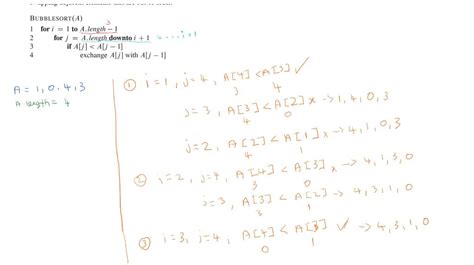 BUBBLESORT(A)
3
1 for i = 1 to A.length − 1
2 for j = A.length downto i + 1 4 ... i+1
3 if A[j] < A[j − 1]
4 exchange A[j] with A[j − 1]
A = 1, 0, 4, 3
A.length = 4
① i=1, j=4, A[4] < A[3] ✓
3 4
j=3, A[3] < A[2] x → 1, 4, 0, 3
4 0
j=2, A[2] < A[1] x → 4, 1, 0, 3
4 1
② i=2, j=4, A[4] < A[3] x → 4, 1, 3, 0
3 0
j=3, A[3] < A[2] → 4, 3, 1, 0
3 1
③ i=3, j=4, A[4] < A[3] ✓ → 4, 3, 1, 0
0 1